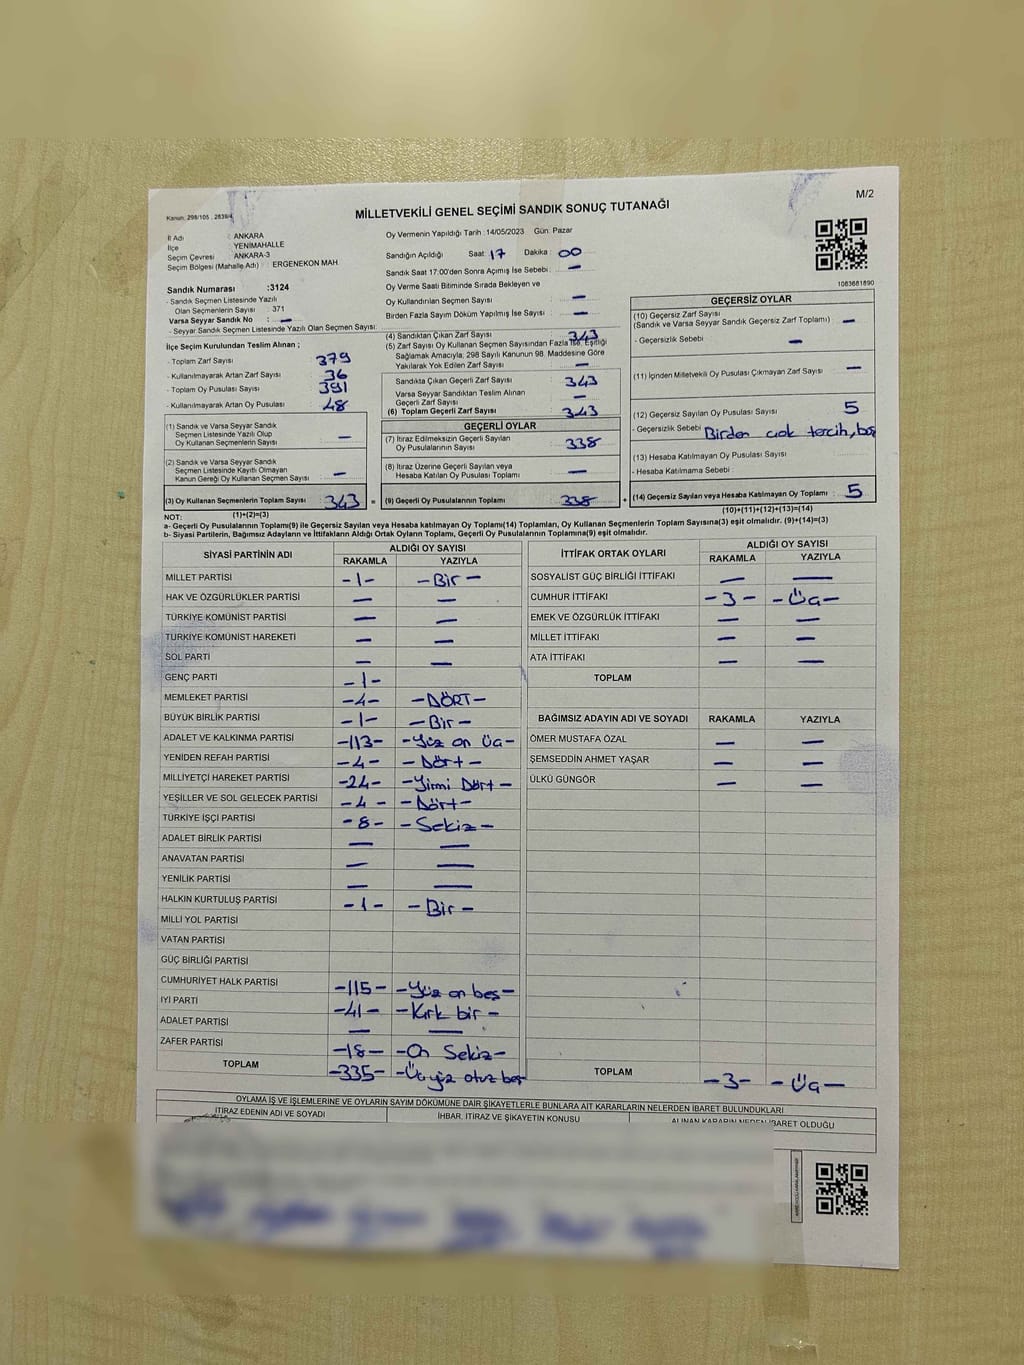 M/2
Kanun: 298/105 , 2839/4
MİLLETVEKİLİ GENEL SEÇİMİ SANDIK SONUÇ TUTANAĞI
İl Adı : ANKARA
İlçe : YENİMAHALLE
Seçim Çevresi : ANKARA-3
Seçim Bölgesi (Mahalle Adı) : ERGENEKON MAH
Oy Vermenin Yapıldığı Tarih :14/05/2023 Gün: Pazar
Sandığın Açıldığı Saat: 17 Dakika : 00
Sandık Saat 17:00'den Sonra Açımış İse Sebebi : —
Oy Verme Saati Bitiminde Sırada Bekleyen ve
Oy Kullandırılan Seçmen Sayısı —
Birden Fazla Sayım Döküm Yapılmış İse Sayısı : —
1083681890
Sandık Numarası :3124
- Sandık Seçmen Listesinde Yazılı
Olan Seçmenlerin Sayısı : 371
Varsa Seyyar Sandık No : —
- Seyyar Sandık Seçmen Listesinde Yazılı Olan Seçmen Sayısı:
İlçe Seçim Kurulundan Teslim Alınan ;
- Toplam Zarf Sayısı 379
- Kullanılmayarak Artan Zarf Sayısı 36
- Toplam Oy Pusulası Sayısı 391
- Kullanılmayarak Artan Oy Pusulası 48
(1) Sandık ve Varsa Seyyar Sandık
Seçmen Listesinde Yazılı Olup
Oy Kullanan Seçmenlerin Sayısı —
(2) Sandık ve Varsa Seyyar Sandık
Seçmen Listesinde Kayıtlı Olmayan
Kanun Gereği Oy Kullanan Seçmen Sayısı —
(3) Oy Kullanan Seçmenlerin Toplam Sayısı 343 =
(1)+(2)=(3)
(4) Sandıktan Çıkan Zarf Sayısı 343
(5) Zarf Sayısı Oy Kullanan Seçmen Sayısından Fazla İse, Eşitliği
Sağlamak Amacıyla; 298 Sayılı Kanunun 98. Maddesine Göre
Yakılarak Yok Edilen Zarf Sayısı —
Sandıkta Çıkan Geçerli Zarf Sayısı 343
Varsa Seyyar Sandıktan Teslim Alınan
Geçerli Zarf Sayısı —
(6) Toplam Geçerli Zarf Sayısı 343
GEÇERLİ OYLAR
(7) İtiraz Edilmeksizin Geçerli Sayılan
Oy Pusulası Sayısı 338
(8) İtiraz Üzerine Geçerli Sayılan veya
Hesaba Katılan Oy Pusulası Toplamı —
(9) Geçerli Oy Pusulalarının Toplamı 338 +
GEÇERSİZ OYLAR
(10) Geçersiz Zarf Sayısı
(Sandık ve Varsa Seyyar Sandık Geçersiz Zarf Toplamı) —
- Geçersizlik Sebebi —
(11) İçinden Milletvekili Oy Pusulası Çıkmayan Zarf Sayısı —
(12) Geçersiz Sayılan Oy Pusulası Sayısı 5
- Geçersizlik Sebebi Birden çok tercih, boş
(13) Hesaba Katılmayan Oy Pusulası Sayısı
- Hesaba Katılmama Sebebi :
(14) Geçersiz Sayılan veya Hesaba Katılmayan Oy Toplamı 5
(10)+(11)+(12)+(13)=(14)
NOT:
a- Geçerli Oy Pusulalarının Toplamı(9) ile Geçersiz Sayılan veya Hesaba katılmayan Oy Toplamı(14) Toplamları, Oy Kullanan Seçmenlerin Toplam Sayısına(3) eşit olmalıdır. (9)+(14)=(3)
b- Siyasi Partilerin, Bağımsız Adayların ve İttifakların Aldığı Ortak Oyların Toplamı, Geçerli Oy Pusulalarının Toplamına(9) eşit olmalıdır.
SİYASİ PARTİNİN ADI ALDIĞI OY SAYISI
RAKAMLA YAZIYLA
MİLLET PARTİSİ -1- -Bir-
HAK VE ÖZGÜRLÜKLER PARTİSİ — —
TÜRKİYE KOMÜNİST PARTİSİ — —
TÜRKİYE KOMÜNİST HAREKETİ — —
SOL PARTİ — —
GENÇ PARTİ -1-
MEMLEKET PARTİSİ -4- -DÖRT-
BÜYÜK BİRLİK PARTİSİ -1- -Bir-
ADALET VE KALKINMA PARTİSİ -113- -Yüz on üç-
YENİDEN REFAH PARTİSİ -4- -Dört-
MİLLİYETÇİ HAREKET PARTİSİ -24- -Yirmi Dört-
YEŞİLLER VE SOL GELECEK PARTİSİ -4- -Dört-
TÜRKİYE İŞÇİ PARTİSİ -8- -Sekiz-
ADALET BİRLİK PARTİSİ — —
ANAVATAN PARTİSİ — —
YENİLİK PARTİSİ — —
HALKIN KURTULUŞ PARTİSİ -1- -Bir-
MİLLİ YOL PARTİSİ
VATAN PARTİSİ
GÜÇ BİRLİĞİ PARTİSİ
CUMHURİYET HALK PARTİSİ -115- -Yüz on beş-
İYİ PARTİ -41- -Kırk bir-
ADALET PARTİSİ — —
ZAFER PARTİSİ -18- -On Sekiz-
TOPLAM -335- -Üç yüz otuz beş
İTTİFAK ORTAK OYLARI ALDIĞI OY SAYISI
RAKAMLA YAZIYLA
SOSYALİST GÜÇ BİRLİĞİ İTTİFAKI — —
CUMHUR İTTİFAKI -3- -Üç-
EMEK VE ÖZGÜRLÜK İTTİFAKI — —
MİLLET İTTİFAKI — —
ATA İTTİFAKI — —
TOPLAM
BAĞIMSIZ ADAYIN ADI VE SOYADI RAKAMLA YAZIYLA
ÖMER MUSTAFA ÖZAL — —
ŞEMSEDDİN AHMET YAŞAR — —
ÜLKÜ GÜNGÖR — —
TOPLAM -3- -Üç-
OYLAMA İŞ VE İŞLEMLERİNE VE OYLARIN SAYIM DÖKÜMÜNE DAİR ŞİKAYETLERLE BUNLARA AİT KARARLARIN NELERDEN İBARET BULUNDUKLARI
İTİRAZ EDENİN ADI VE SOYADI İHBAR, İTİRAZ VE ŞİKAYETİN KONUSU ALINAN KARARIN NEDEN İBARET OLDUĞU